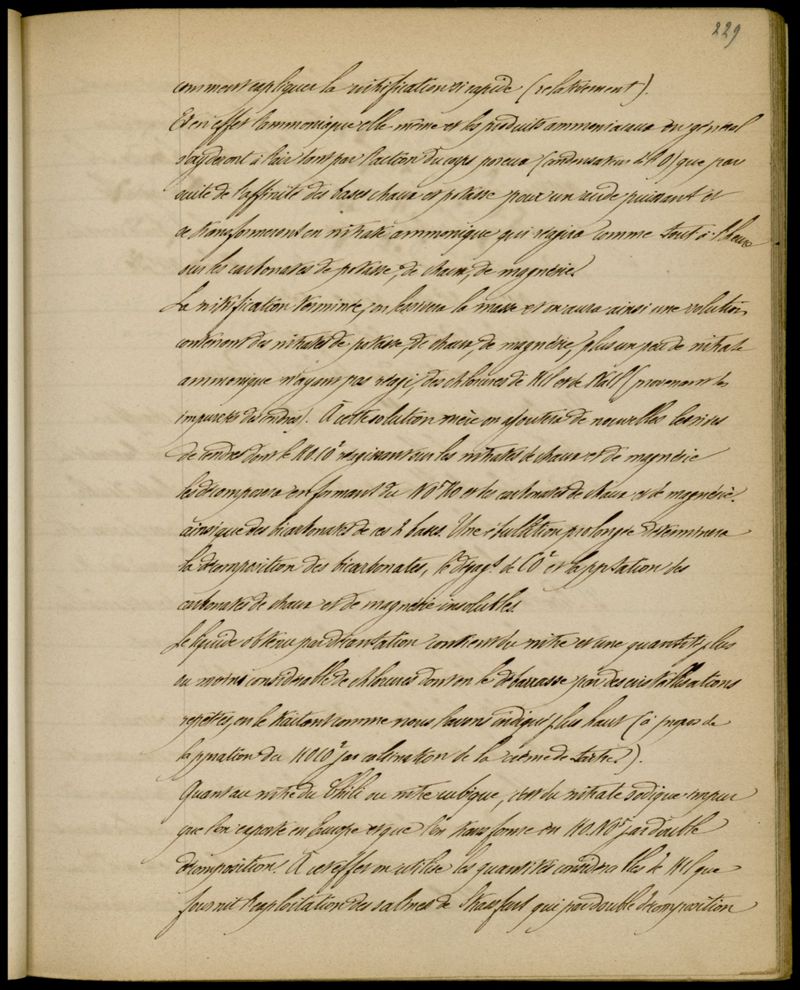 229
comment expliquer la nitrification si rapide (relativement).
Et en effet l'ammoniaque elle même et les produits ammoniacaux en général
s'oxyderont à l'air tant par l'action du corps poreux (condensation de l'O) que par
suite de l'affinité des bases chaux et potasse pour un acide puissant et
se transformeront en nitrate ammonique qui réagira comme tout à l'heure
sur les carbonates de potasse, de chaux, de magnésie.
La nitrification terminée, on lessivera la masse et on aura ainsi une solution
contenant des nitrates de potasse, de chaux, de magnésie, plus un peu de nitrate
ammonique n'ayant pas réagi, des chlorures de KCl et de NaCl (provenant des
impuretés des cendres). À cette solution mère on ajoutera de nouvelles lessives
de cendres dont le KO.CO² réagissant sur les nitrates de chaux et de magnésie
les décomposera en formant du NO⁵KO et les carbonates de chaux et de magnésie.
ainsi que des bicarbonates de ces 2 bases. Une ébullition prolongée déterminera
la décomposition des bicarbonates, le dégag.t de CO² et la pptation des
carbonates de chaux et de magnésie insolubles
Le liquide obtenu par décantation contient du nitre et une quantité plus
ou moins considérable de chlorures dont on le débarrasse par des cristallisations
répétées, en le traitant comme nous l'avons indiqué plus haut (à propos de
la ppration du KOCO² par calcination de la crème de tartre).
Quant au nitre du Chili ou nitre cubique, c'est du nitrate sodique impur
que l'on exporte en Europe et que l'on transforme en KO.NO⁵ par double
décomposition. À cet effet on utilise les quantités considérables de KCl que
fournit l'exploitation des salines de Stassfurt qui par double décomposition